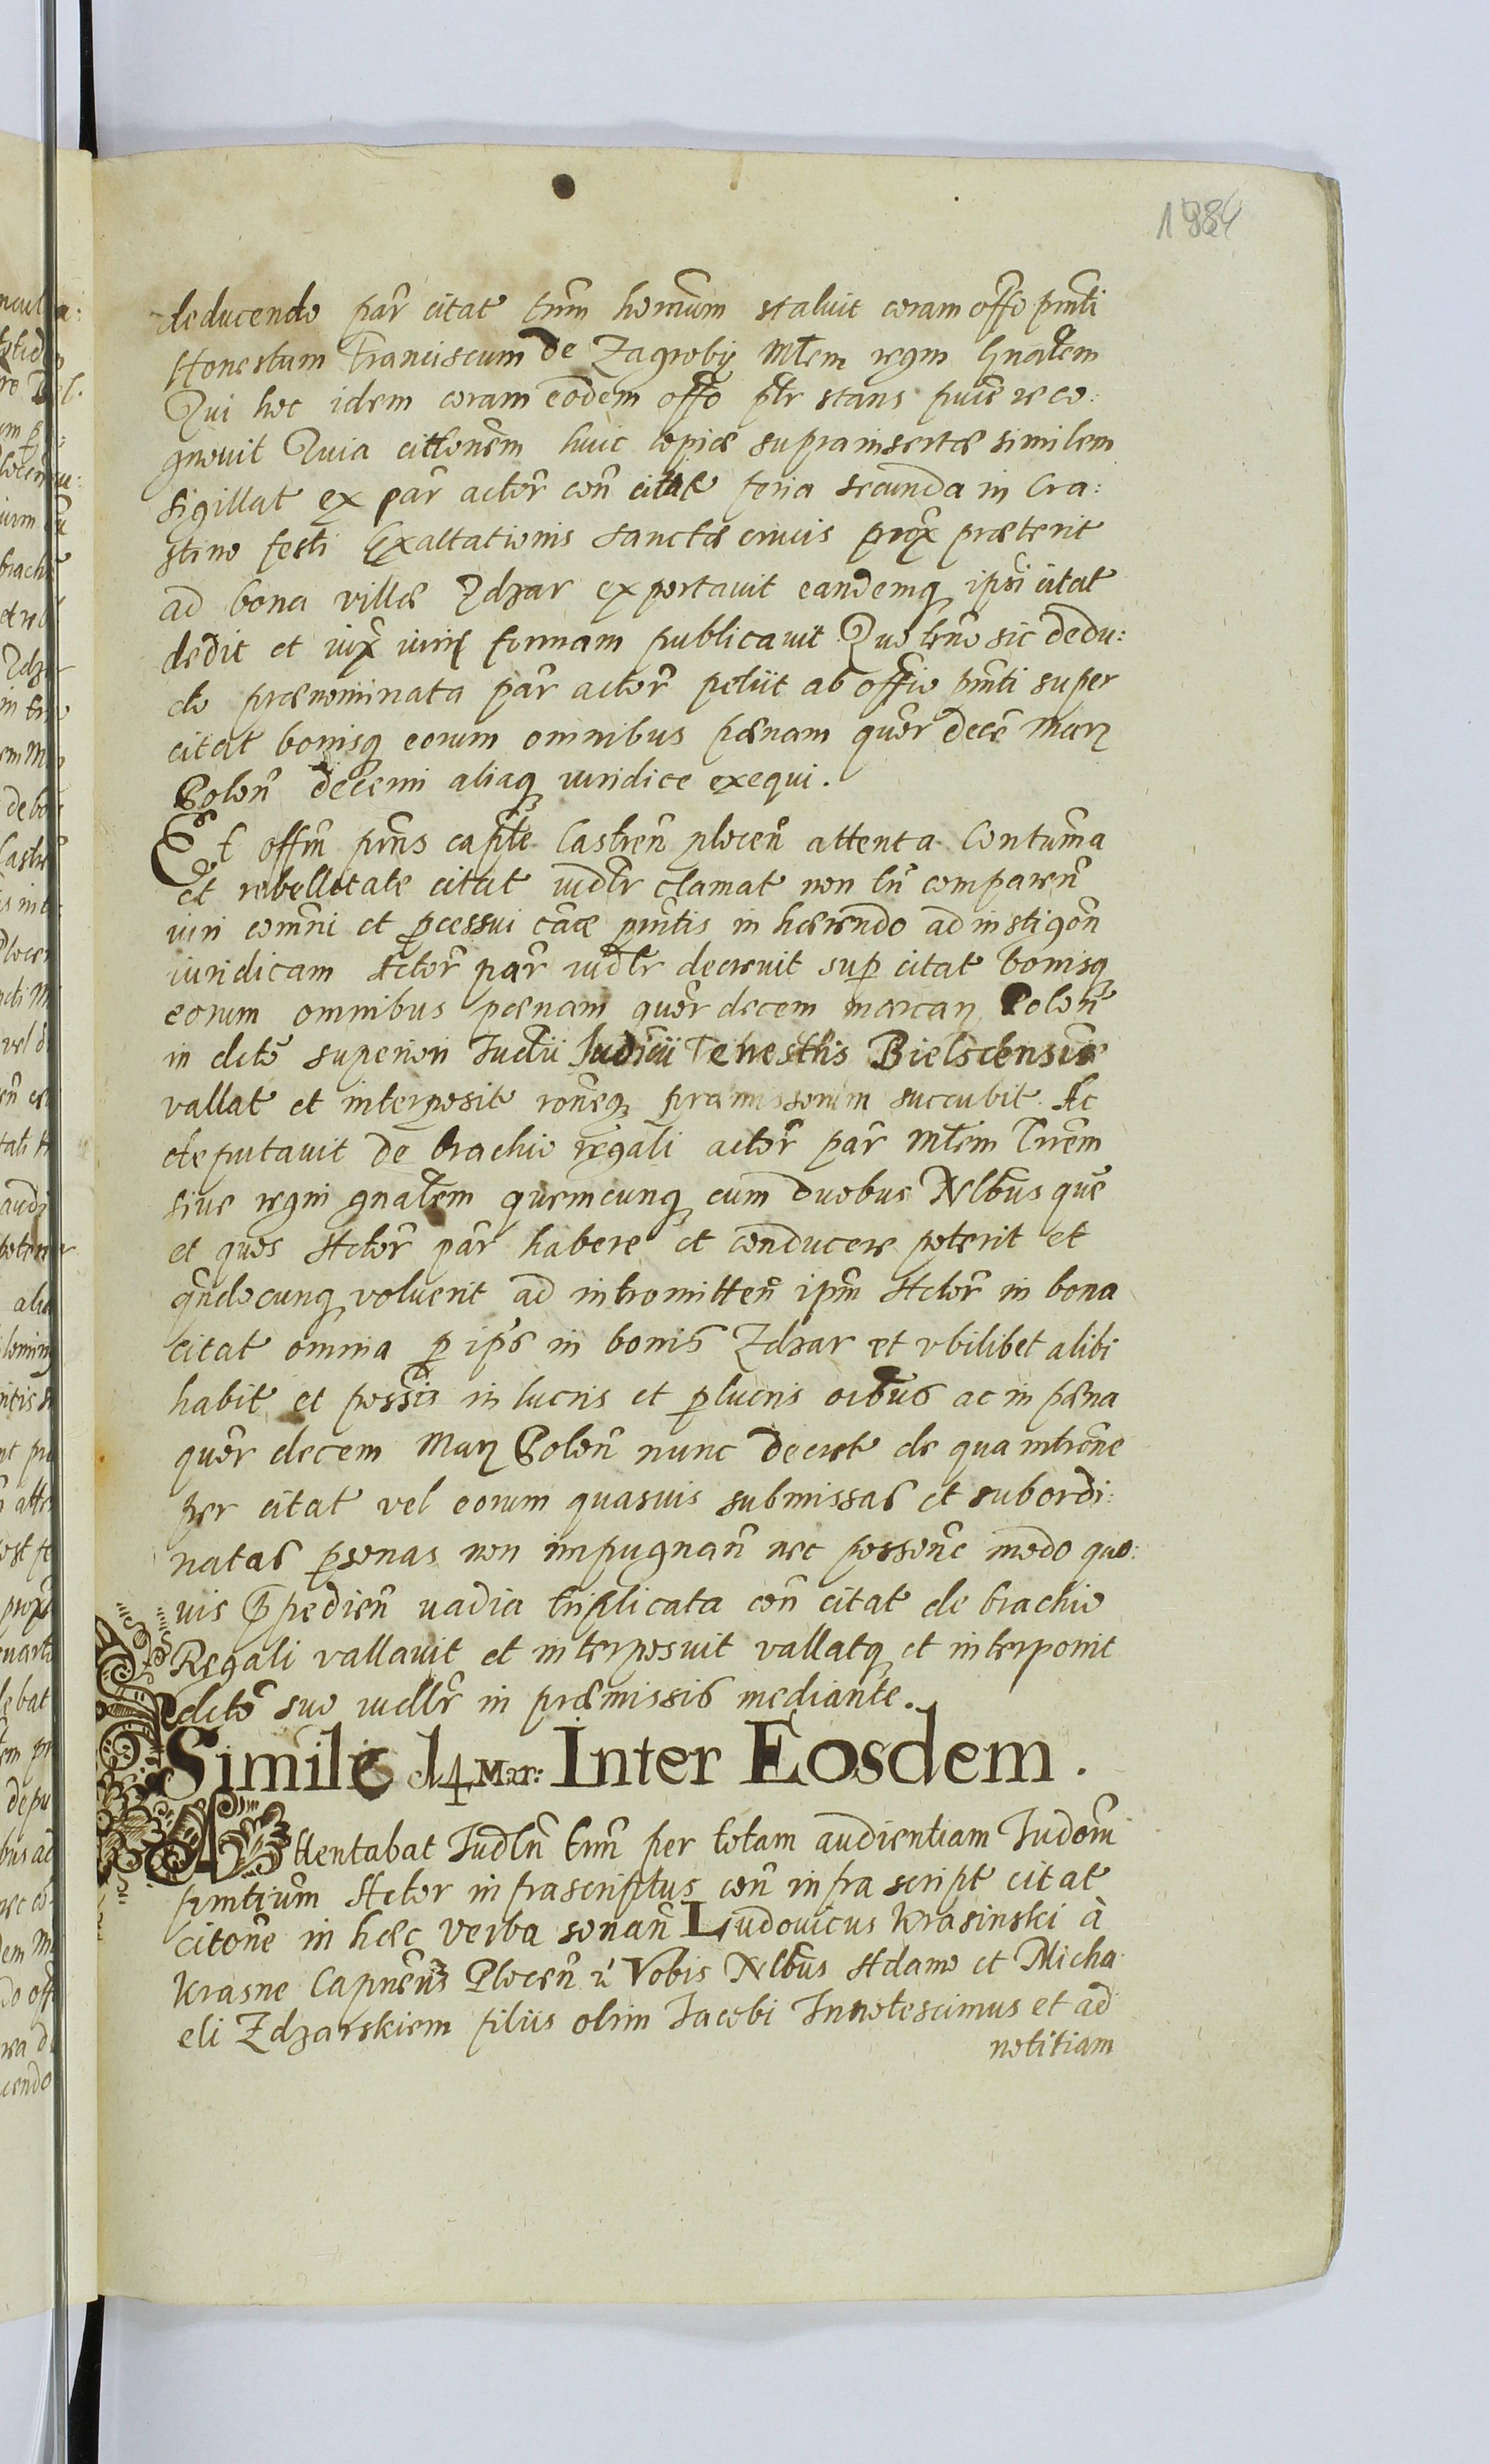 1984
deducendo par̃ citat tm̃m homũm stabuit coram offo pm̃ti
Honestum Franciscum de Zagroby Mlem regm Gnalem
Qui hoc idem coram eodem offo ptr stans puie reco:
gnovit Quia citlonem huic copiæ suprainsertæ similem
sigillat ex par̃ actor̃ con̄ citat feria secunda in Cra:
stino festi Exaltationis sanctæ crucis prox præterit
ad bona villæ Zdzar exportavit eandemq ipsi citat
dedit et iux iuris formam publicavit Quo trno sic dedu:
cto prænominata par̃ actor̃ petiit ab offio pm̃ti super
citat bonisq eorum omnibus pænam quor decẽ Marz
Polon̄ decerni aliaq iuridice exequi.
Et offm̃ pm̃s capĩte Castren̄ plocen̄ attenta Contum̃a
et rebellitate citat iudlr clamat non tn̄ comparen̄
iuri com̃ni et pcessui cãæ pm̃tis in hærendo ad instigon̄
iuridicam Actor̃ par̃ iudlr decrevit sup citat bonisq
eorum omnibus pænam quor decem marcarz Polon̄
in dcto superiori Iudii Iudicii Terrestris Bielscensis
vallat et interposit rõneq præmissorum succubit. Ac
deputavit de brachio regali actor̃ par̃ Mlem Trrem
sive regni gnalem quemcunq cum duobus Nlbus quẽ
et quos Actor̃ par̃ habere et conducere poterit et
qñdocunq voluerit ad intromitten̄ ipm̃ Actor̃ in bona
citat omnia p ip̃s in bonis Zdzar et ubilibet alibi
habit et possessa in lucris et plucris oĩbus ac in pæna
quor decem Marz Polon̄ nunc decret de qua intrõne
per citat vel eorum quasuis submissas et subordi:
natas psonas non impugnan̄ nec possone modo quo:
vis ppedien̄ vadia triplicata con̄ citat de brachio
Regali vallavit et interposuit vallatq et interponit
dcto suo iudlr in præmissis mediante.
Simile 14 Mar: Inter Eosdem.
Attentabat Iudln̄ tm̃m per totam audientiam Iudom̃
pm̃tium̃ Actor infrascriptus con̄ infra script citat
citone in hæc verba sonan̄ Ludovicus Krasinski à
Krasne Capneus Plocen̄ Vobis Nlbus Adamo et Micha
eli Zdzarskiem filiis olim Iacobi Innotescimus et ad
notitiam